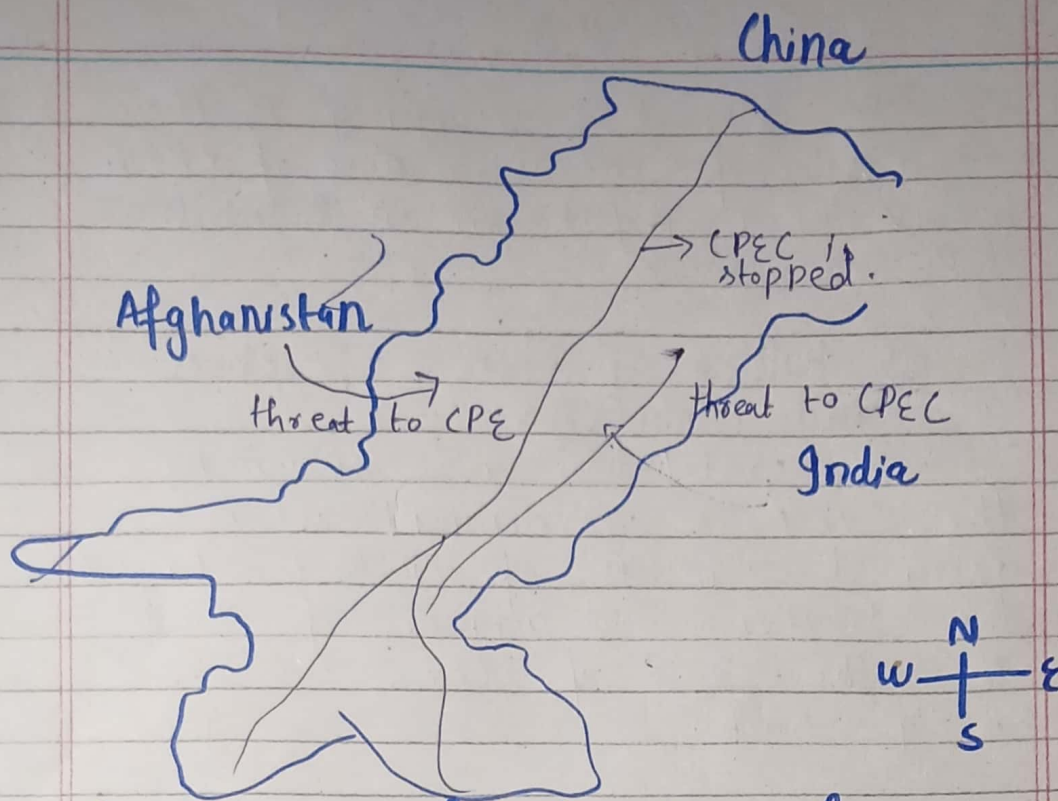 China
CPEC is
stopped.
Afghanistan
threat to CPE
threat to CPEC
India
N
W E
S